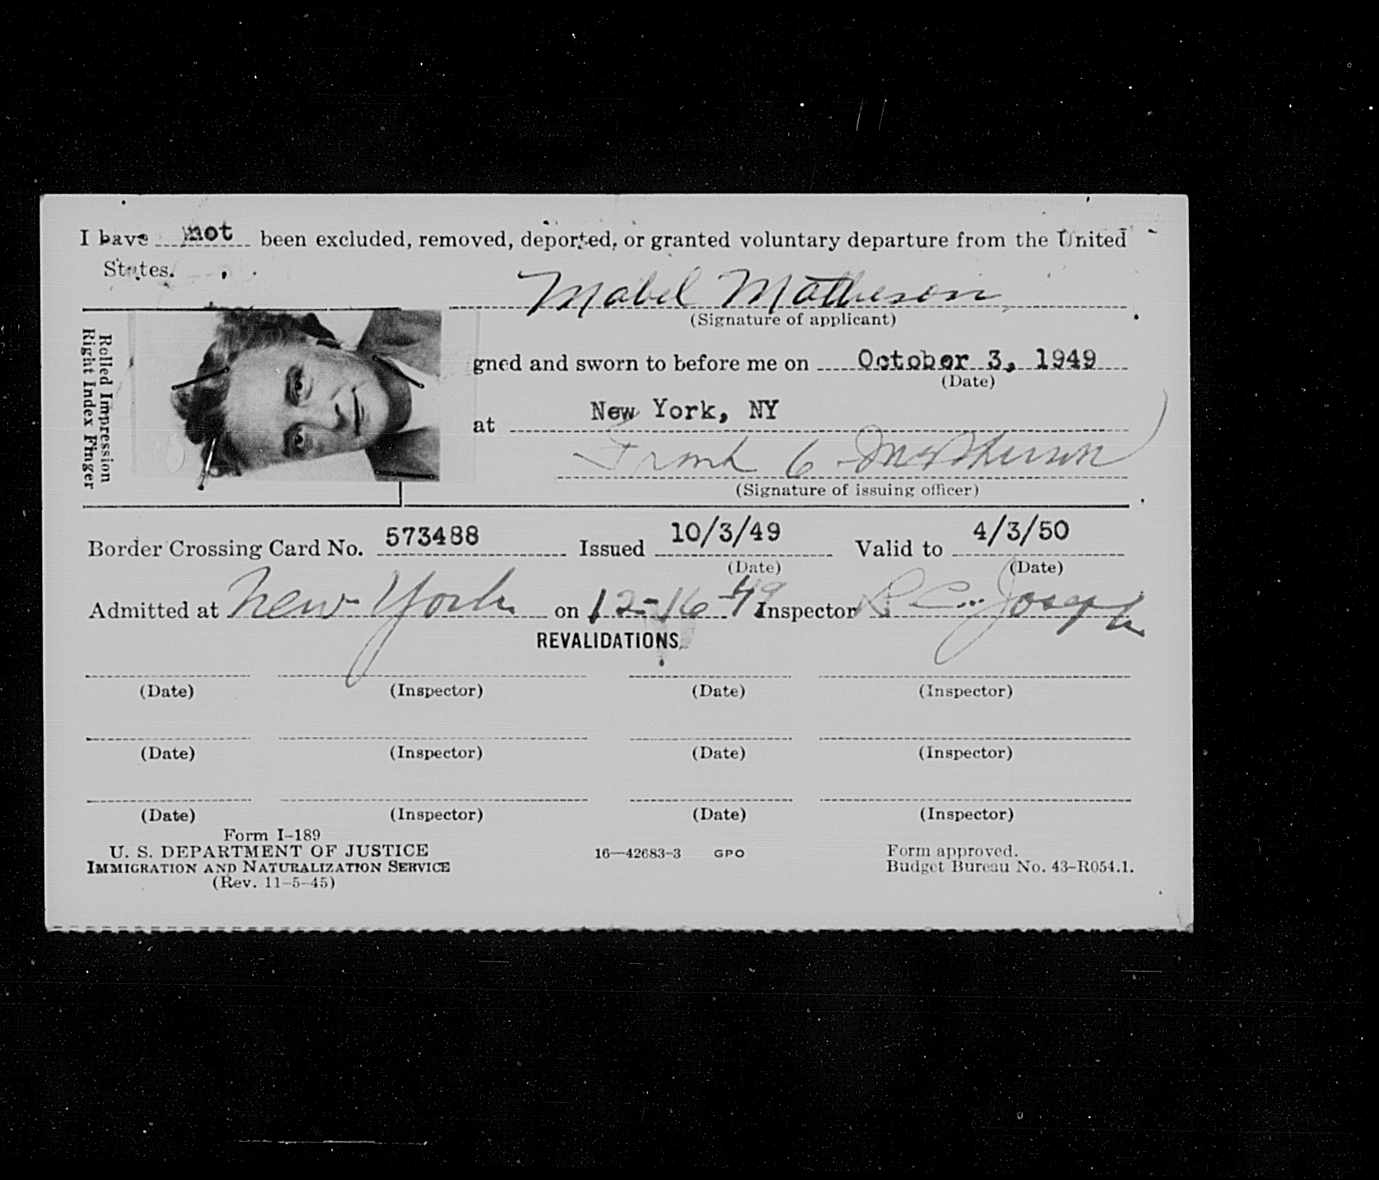 I have not been excluded, removed, deported, or granted voluntary departure from the United
States.
Mabel Matheson
(Signature of applicant)
Rolled Impression
Right Index Finger
gned and sworn to before me on October 3, 1949
(Date)
at New York, NY
Frank C McPherson
(Signature of issuing officer)
Border Crossing Card No. 573488 Issued 10/3/49 Valid to 4/3/50
(Date) (Date)
Admitted at New York on 12-16-49 Inspector R. C. Joseph
REVALIDATIONS
(Date) (Inspector) (Date) (Inspector)
(Date) (Inspector) (Date) (Inspector)
(Date) (Inspector) (Date) (Inspector)
Form I-189
U. S. DEPARTMENT OF JUSTICE
IMMIGRATION AND NATURALIZATION SERVICE
(Rev. 11-5-45)
16—42683-3 GPO
Form approved.
Budget Bureau No. 43-R054.1.